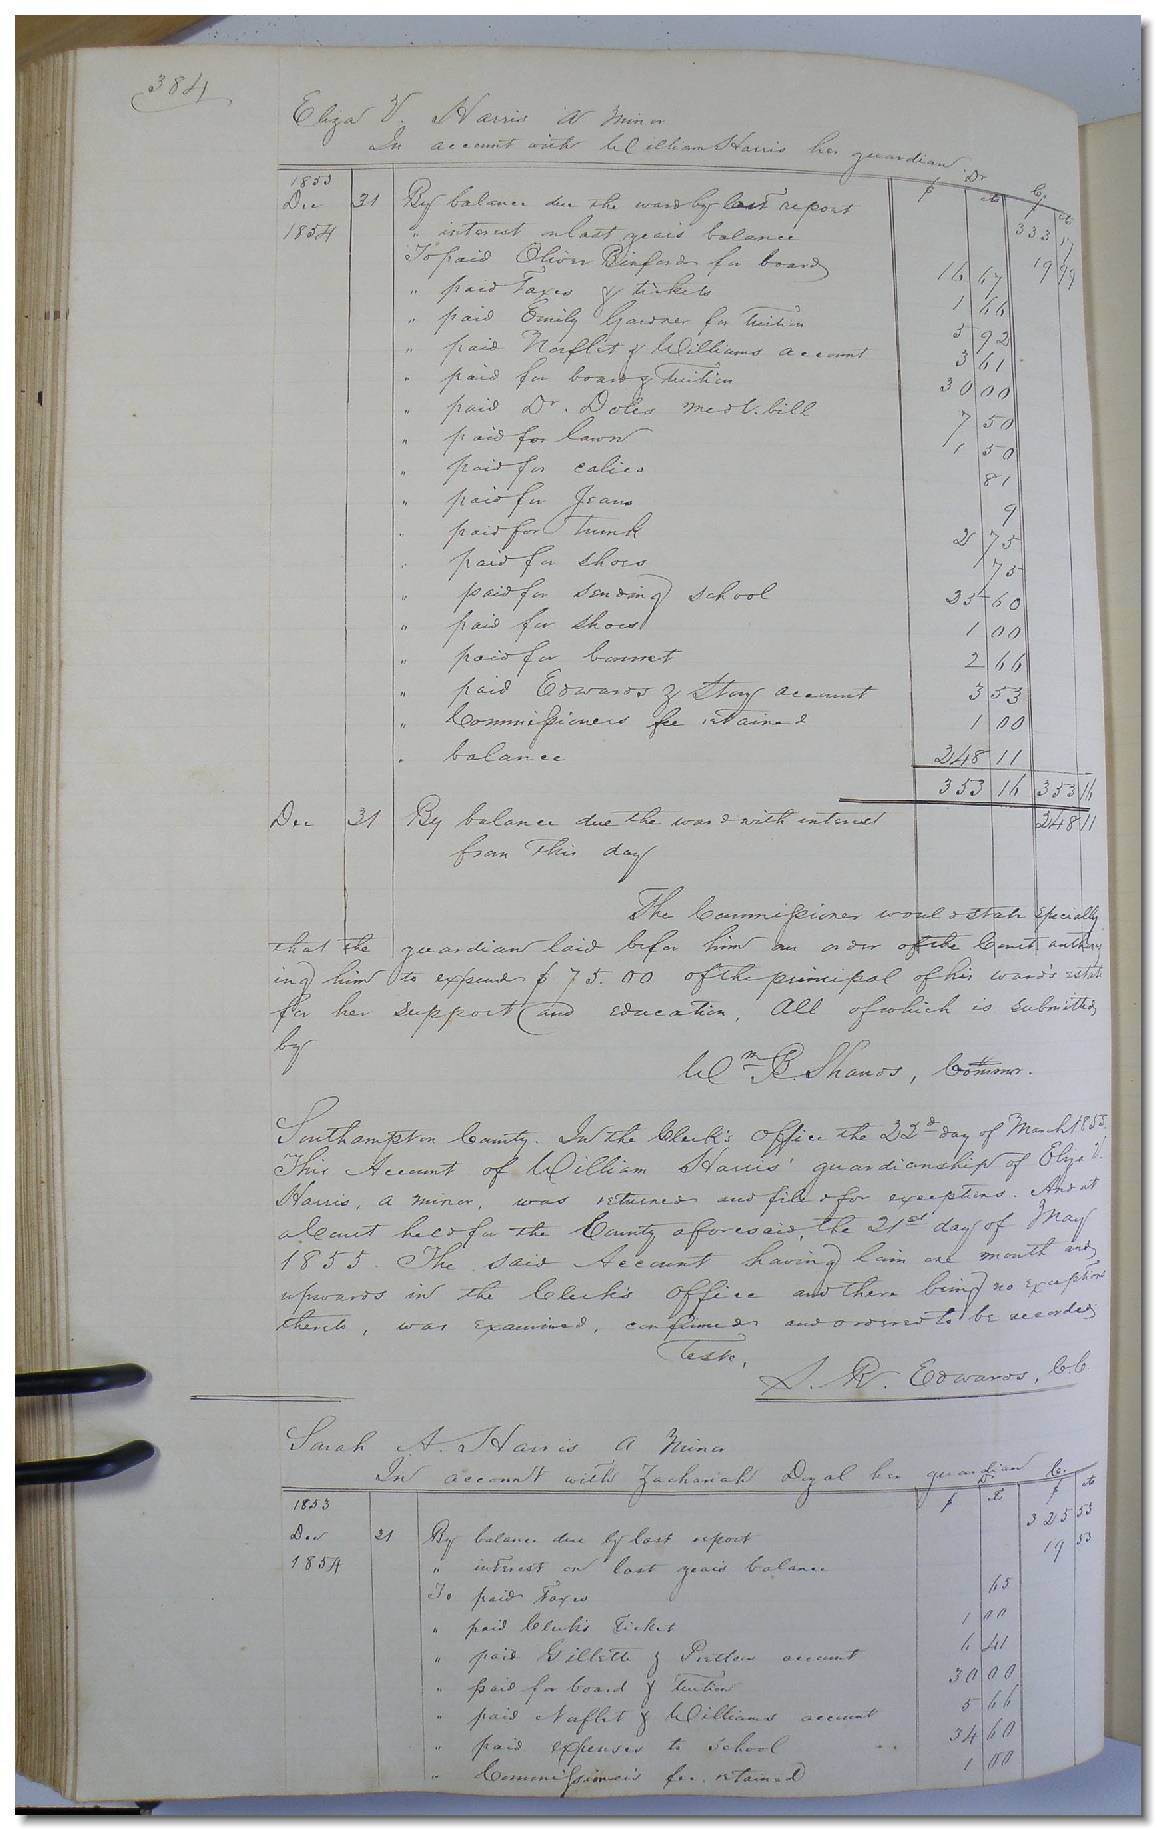 384
Eliza V. Harris a minor
In account with William Harris her guardian
Dr Cr
$ ct $ ct
1853
Dec 31 By balance due the ward by last report 333 17
1854 " interest on last years balance 19 99
To paid Oliver Binford for board 16 67
" paid Taxes & tickets 1 66
" paid Emily Gardner for Tuition 5 92
" paid Norflet & Williams account 3 61
" paid for board & Tuition 30 00
" paid Dr. Doles medl. bill 7 50
" paid for lawn 1 50
" paid for calico 81
" paid for Jeans 9
" paid for Trunk 2 75
" paid for shoes 75
" paid for sending school 25 60
" paid for shoes 1 00
" paid for bonnet 2 66
" paid Edwards & Story account 3 53
" Commissioners fee retained 1 00
" balance 248 11
353 16 353 16
Dec 31 By balance due the ward with interest 248 11
from this day
The Commissioner would state specially
that the guardian laid befor him an order of the Court authoriz
ing him to expend $75.00 of the principal of his ward's estate
for her support and education, All of which is submitted
by
Wm B. Shands, Commr.
Southampton County. In the Clerk's Office the 22d day of March 1855.
This Account of William Harris' guardianship of Eliza V.
Harris, a minor, was returned and filed for exceptions. And at
a Court held for the County aforesaid, the 21st day of May
1855. The said Account having lain one month and
upwards in the Clerk's office and there being no exceptions
thereto, was examined, confirmed and ordered to be recorded
Teste,
L. R. Edwards, C.C.
Sarah A. Harris a minor
In account with Zachariah Doyal her guardian
Dr Cr
$ ct $ ct
1853
Dec 31 By balance due by last report 325 53
1854 " interest on last years balance 19 53
To paid Taxes 65
" paid Clerk's Ticket 1 00
" paid Gillette & Pretlow account 6 41
" paid for board & Tuition 30 00
" paid Naflet & Williams account 5 66
" paid expenses to school 34 60
" Commissioner's fee retained 1 00